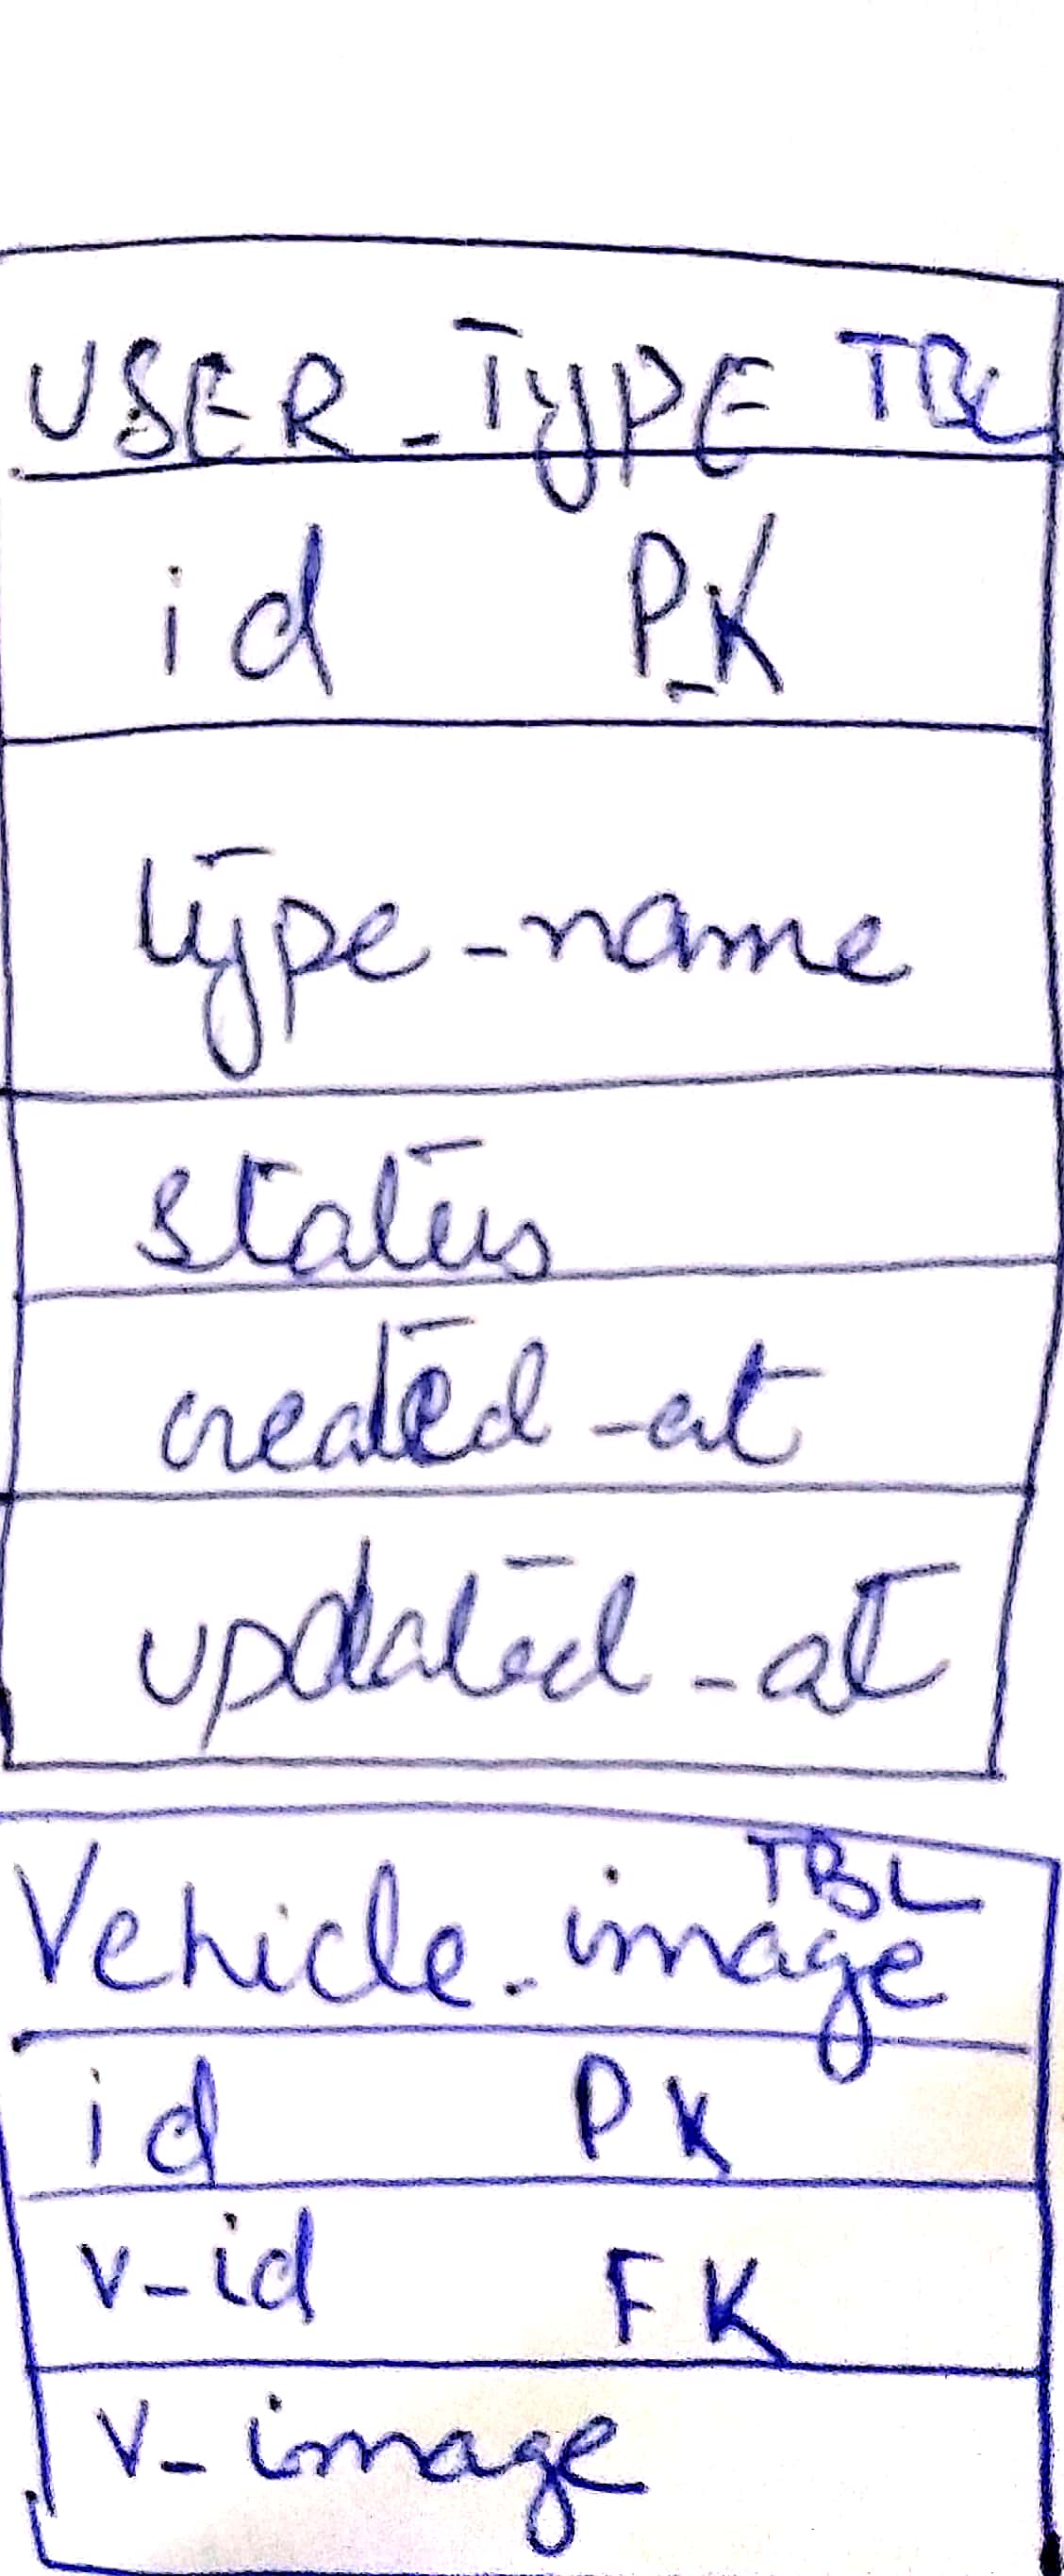 USER_TYPE TBL
id P_K
type_name
status
created_at
updated_at
TBL
Vehicle_image
id PK
v_id FK
v_image